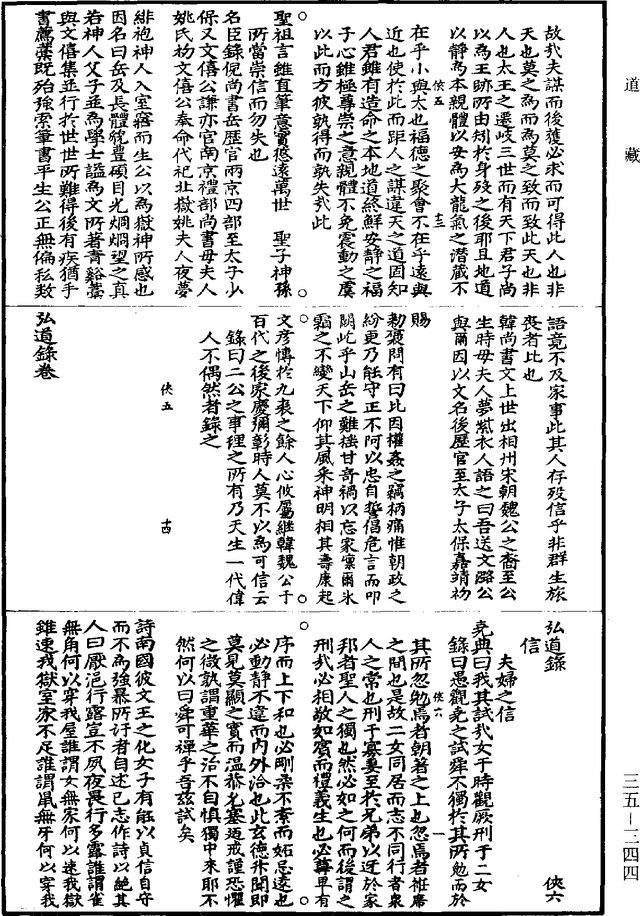 道藏
故我夫謀而後獲必求而可得此人也非
天也莫之為而為莫之致而致此天也非
人也太王之遷岐三世而有天下君子尚
以為王跡所由矧於身歿之後耶且地道
以靜為本親體以安為大龍氣之潛藏不
俠五 十三
在乎小與大也福德之聚會不在乎遠與
近也使於此而距人之謀違天之道固知
人君雖有造命之本地道終鮮安靜之福
子心雖極尊崇之意親體不免震動之虞
以此而方彼孰得而孰失哉此
聖祖言雖直筆意實悠遠萬世 聖子神孫
所當崇信而勿失也
名臣錄倪尚書岳歷官兩京四部至太子少
保父文僖公謙亦官南京禮部尚書母夫人
姚氏初文僖公奉命代祀北嶽姚夫人夜夢
緋袍神人入室寤而生公以為嶽神所感也
因名曰岳及長體貌豐碩目光烱烱望之真
若神人父子並為學士謚為文所著青谿藁
與文僖集並行於世世所難得後有疾猶手
書薦藁既殆強索筆書平生公正無偏私數
語竟不及家事此其人存歿信乎非群生旅
喪者比也
韓尚書文上世出相州宋朝魏公之裔至公
生時母夫人夢紫衣人語之曰吾送文潞公
與爾因以文名後歷官至太子太保嘉靖初
賜
勑褒問有曰比因權姦之竊柄痛惟朝政之
紛更乃能守正不阿以忠自誓倡危言而叩
闕屹乎山岳之難搖甘奇禍以忘家凜爾氷
霜之不變天下仰其風采神明相其壽康起
文彥博於九袠之餘人心攸屬繼韓魏公于
百代之後家慶彌彰時人莫不以為可信云
錄曰二公之事理之所有乃天生一代偉
人不偶然者錄之
俠五 十四
弘道錄卷
弘道錄 俠六
信
夫婦之信
堯典曰我其試哉女于時觀厥刑于二女
錄曰愚觀堯之試舜不獨於其所勉而於
俠六 一
其所忽勉焉者朝著之上也忽焉者袵席
之間也是故二女同居而志不同行者衆
人之常也刑于寡妻至於兄弟以迓於家
邦者聖人之獨也然必如之何而後謂之
刑哉必相敬如賓而禮義生也必尊卑有
序而上下和也必剛柔不紊而妬忌遠也
必動靜不違而內外洽也此玄德升聞即
莫見莫顯之實而溫恭允塞迺戒謹恐懼
之徵孰謂重華之治不自慎獨中來耶不
然何以曰舜可禪乎吾茲試矣
詩南國彼文王之化女子有能以貞信自守
而不為強暴所汙者自述己志作詩以絕其
人曰厭浥行露豈不夙夜畏行多露誰謂雀
無角何以穿我屋誰謂女無家何以速我獄
雖速我獄室家不足誰謂鼠無牙何以穿我
三五—二四四